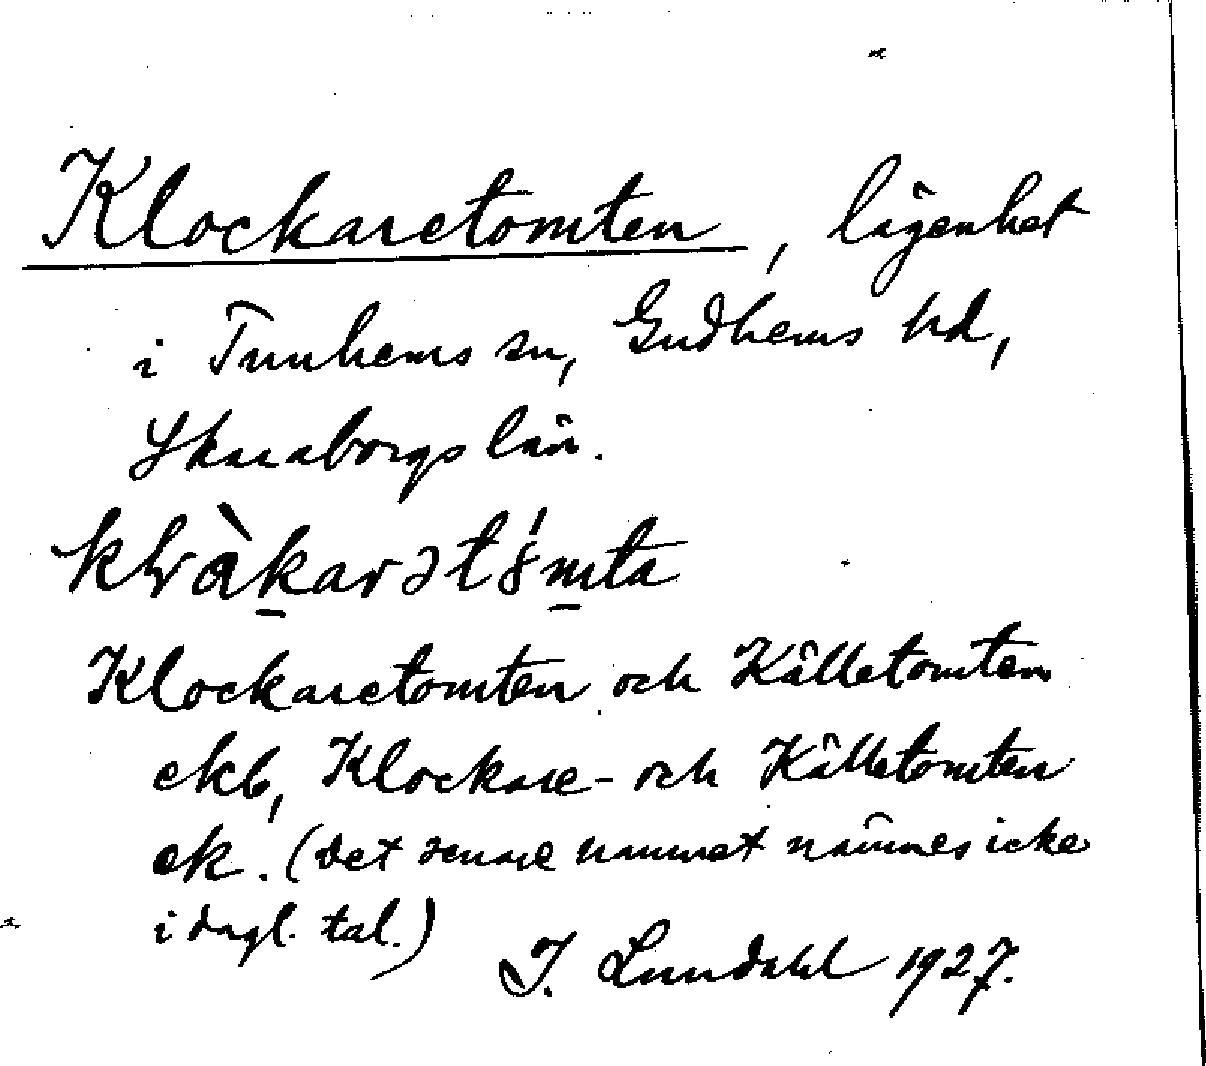 Klockaretomten, lägenhet
i Tunhems sn, Gudhems hd,
Skaraborgs län.
Klockaretomten och Källetomten
ekb, Klockare- och Källetomten
ek. (Det senare namnet nämnes icke
i dagl. tal.)
I. Lundahl 1927.